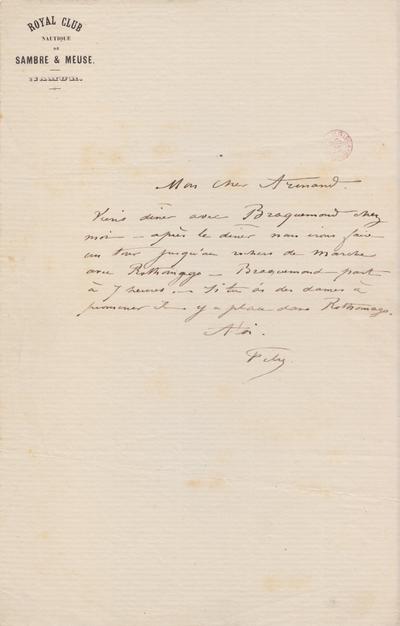 ROYAL CLUB
NAUTIQUE
DE
SAMBRE & MEUSE.
NAMUR.
Mon cher Armand.
Viens diner avec Braquemond chez
moi – après le diner nous irons faire
un tour jusqu'au rochers de Marche
avec Rothomago – Braquemond part
à 7 heures. – Si tu as des dames à
promener il y a place dans Rothomago.
A toi.
Fély.